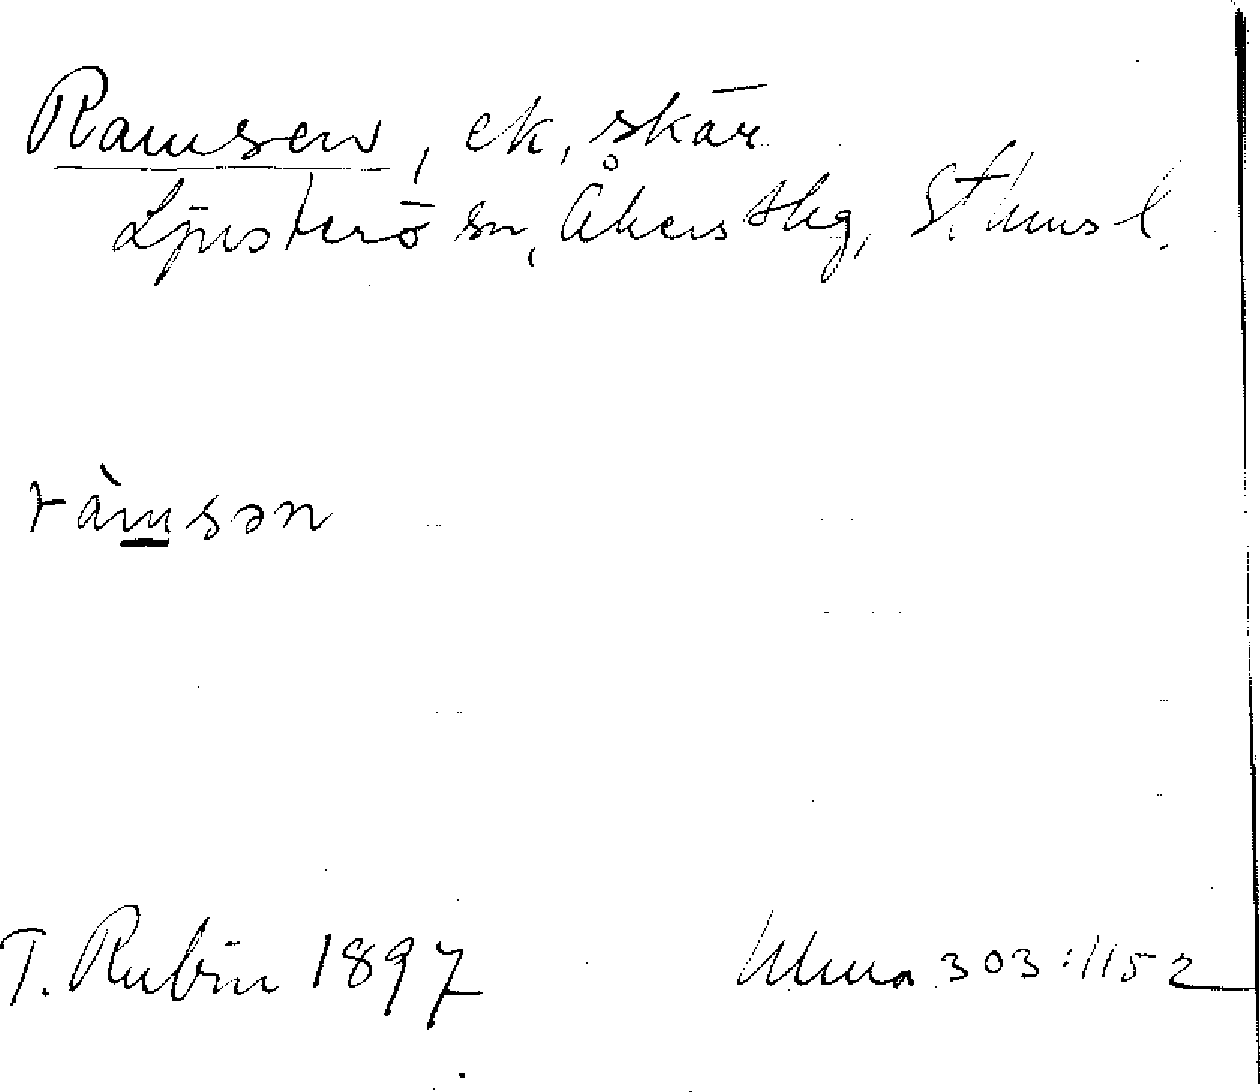 Ramsen, ek, skär
Ljusterö sn, Åkers skg, Sthms l.
ràmsən
T. Rubin 1897 Uluna 303:1152